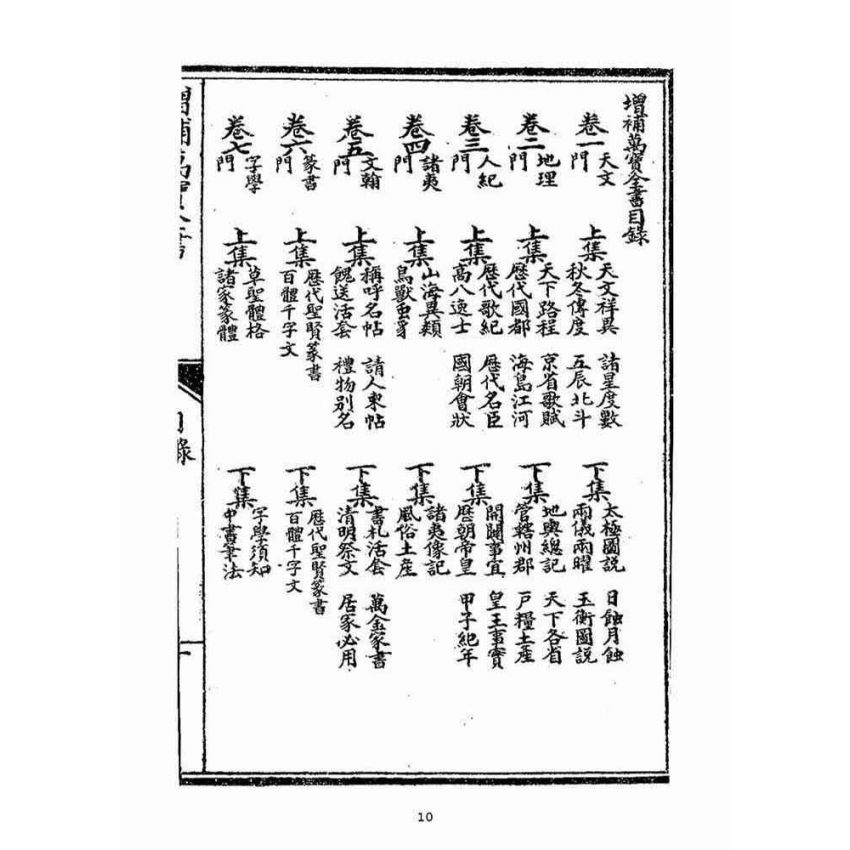 增補萬寶全書目錄
卷一 天文門 上集 天文祥異 諸星度數 秋冬傳度 五辰北斗 下集 太極圖說 日蝕月蝕 兩儀兩曜 玉衡圖說
卷二 地理門 上集 天下路程 京省歌賦 歷代國都 海島江河 下集 地輿總記 天下各省 管轄州郡 戸糧土産
卷三 人紀門 上集 歷代歌紀 歷代名臣 高八逸士 國朝會狀 下集 開闢事宜 皇王事實 歷朝帝皇 甲子紀年
卷四 諸夷門 上集 山海異類 鳥獸虫豸 下集 諸夷像記 風俗土産
卷五 文翰門 上集 稱呼名帖 請人柬帖 餽送活套 禮物別名 下集 書札活套 萬金家書 清明祭文 居家必用
卷六 篆書門 上集 歷代聖賢篆書 百體千字文 下集 歷代聖賢篆書 百體千字文
卷七 字學門 上集 草聖體格 諸家篆體 下集 字學須知 中書筆法
增補萬寶全書 目錄 一
10